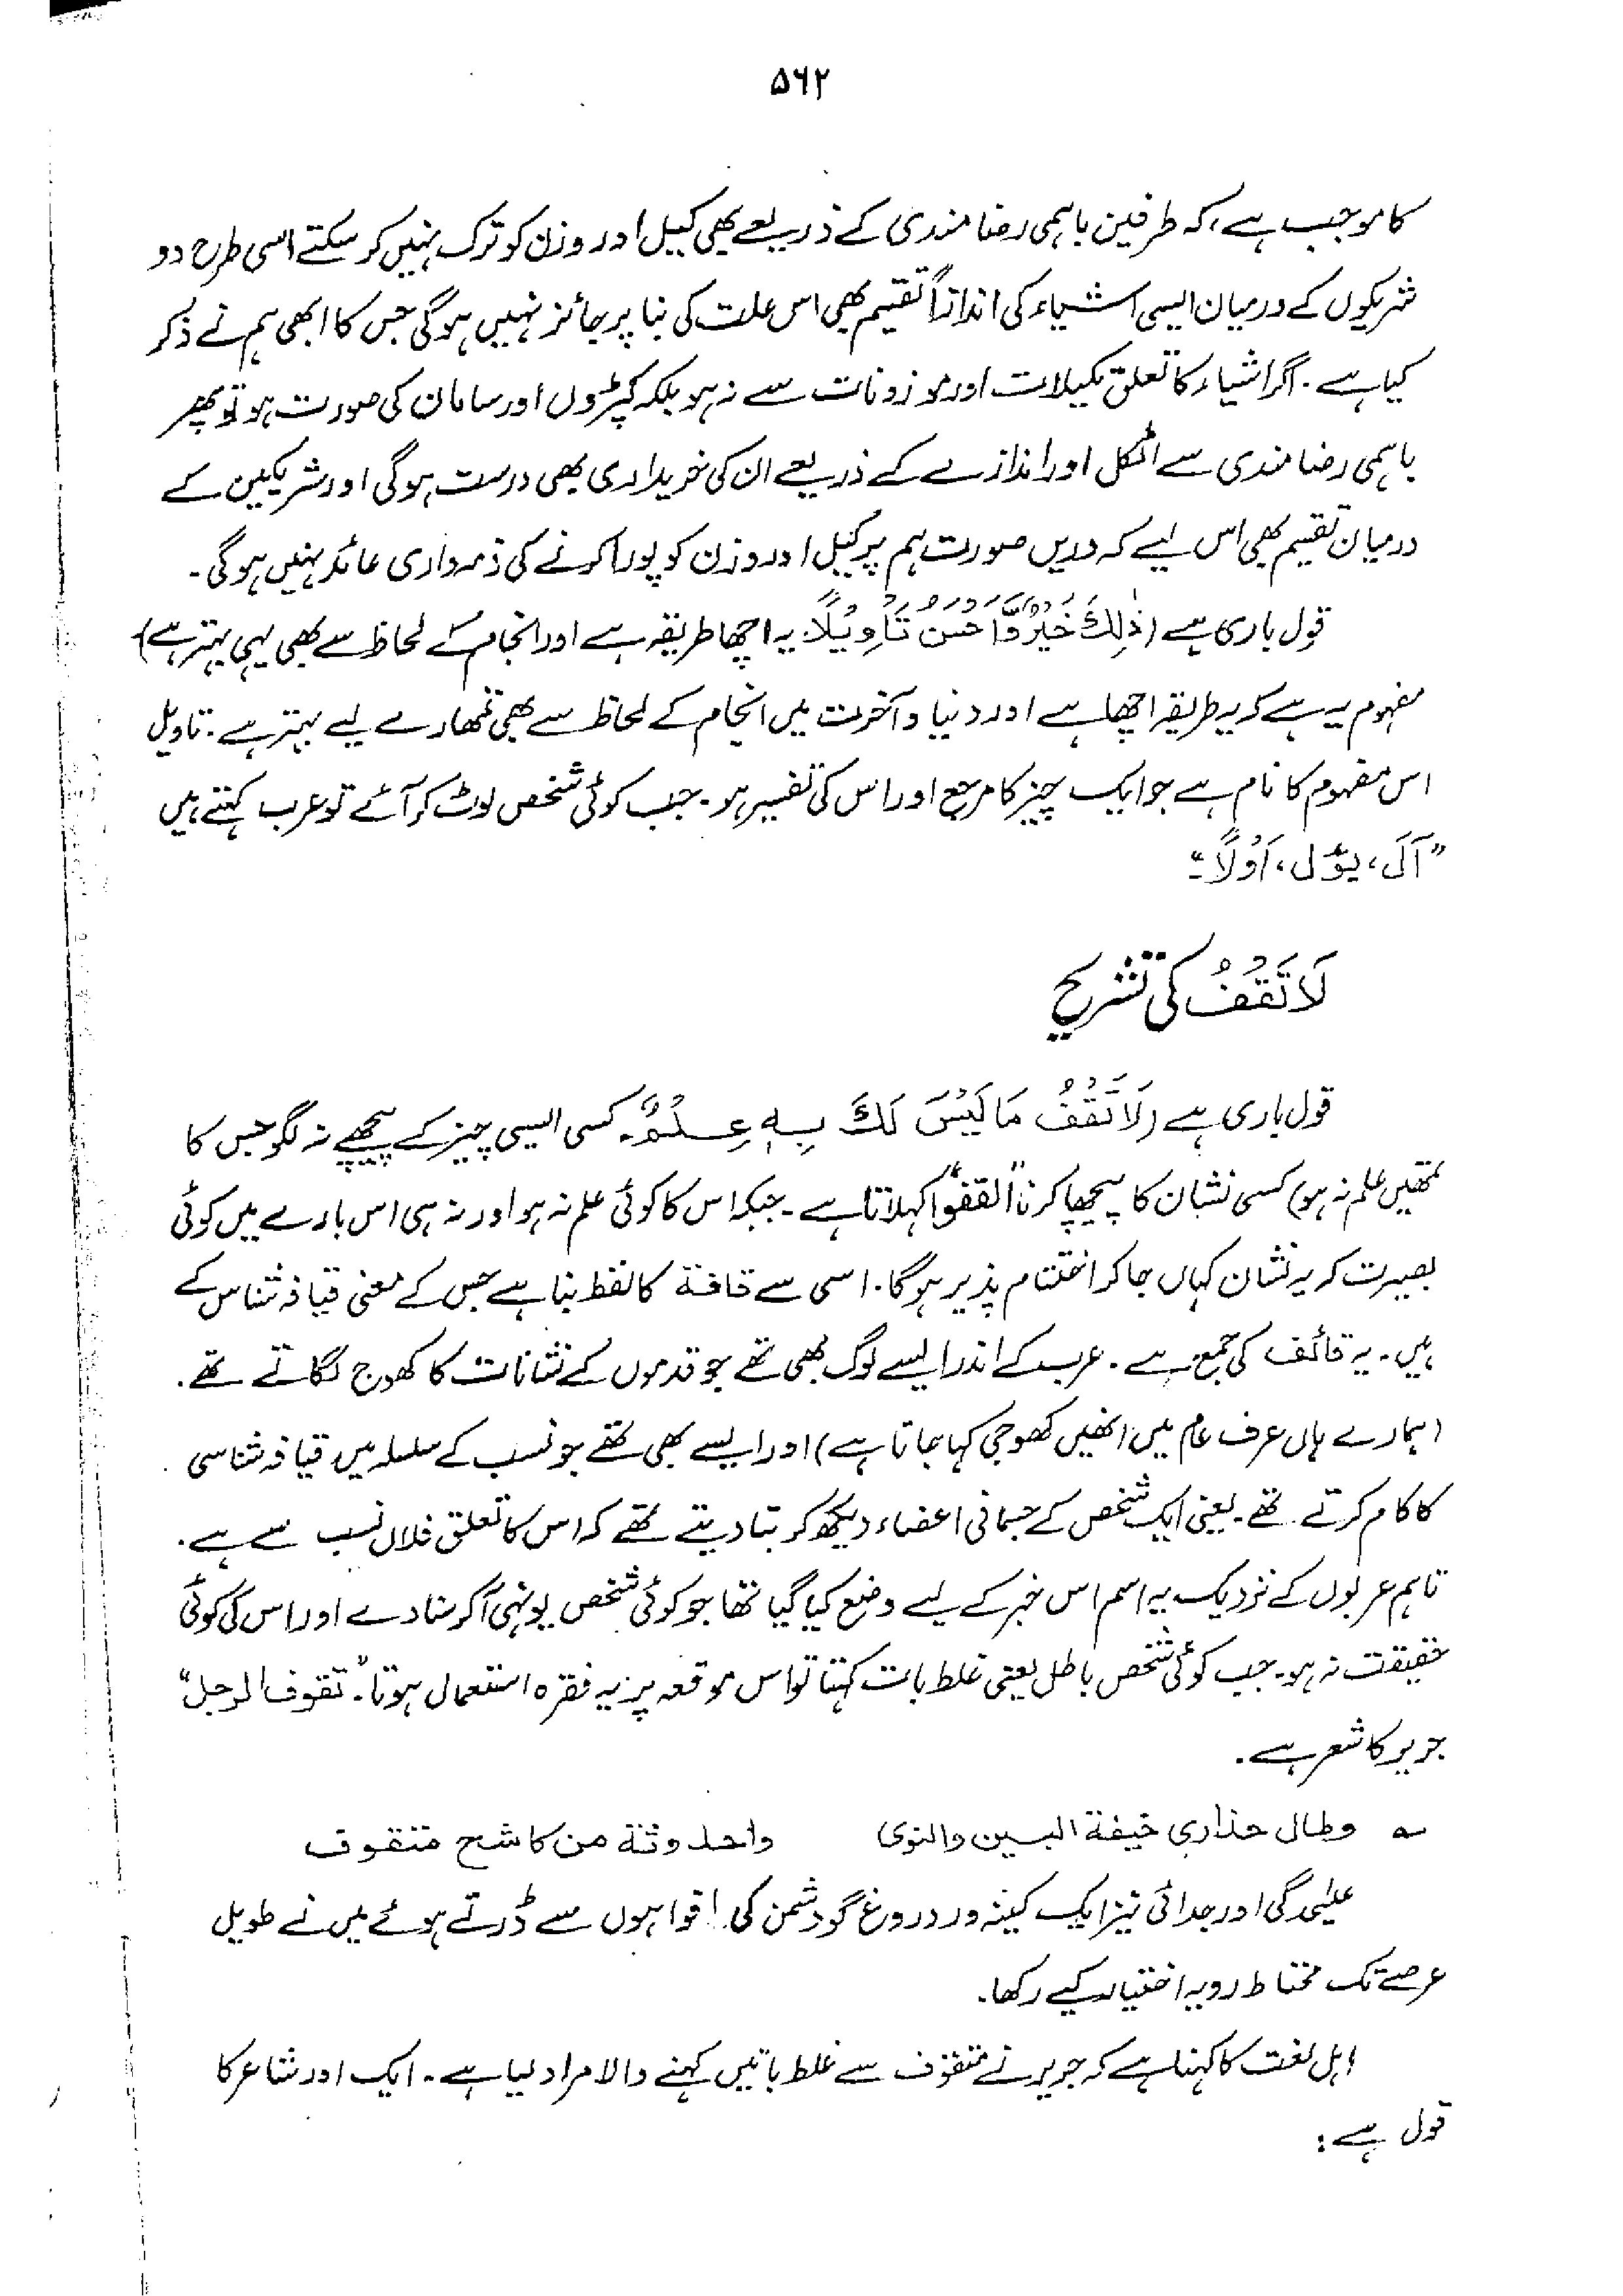 ۵۶۲
کا موجب ہے، کہ طرفین باہمی رضامندی کے ذریعے بھی کیل اور وزن کو ترک نہیں کر سکتے اسی طرح دو
شریکوں کے درمیان ایسی اشیاء کی اندازاً تقیم بھی اس علت کی بنا پر جائز نہیں ہوگی جس کا ابھی ہم نے ذکر
کیا ہے۔ اگر اشیاء کا تعلق مکیلات اور موزونات سے نہ ہو بلکہ کپڑوں اور سامان کی صورت ہو تو پھر
باہمی رضامندی سے اٹکل اور اندازے کے ذریعے ان کی خریداری بھی درست ہوگی اور شریکین کے
درمیان تقیم بھی اس لیے کہ دریں صورت ہم پر کیل اور وزن کو پورا کرنے کی ذمہ داری عائد نہیں ہوگی۔
قول باری ہے (ذٰلِكَ خَيْرٌ وَّاَحْسَنُ تَاْوِيْلًا۔ یہ اچھا طریقہ ہے اور انجام کے لحاظ سے بھی یہی بہتر ہے)
مفہوم یہ ہے کہ یہ طریقہ اچھا ہے اور دنیا و آخرت میں انجام کے لحاظ سے بھی تمھارے لیے بہتر ہے۔ تاویل
اس مفہوم کا نام ہے جو ایک چیز کا مرجع اور اس کی تفسیر ہو۔ جب کوئی شخص لوٹ کر آئے تو عرب کہتے ہیں
”آلَ، يؤل، اَوْلًا“۔
لَا تَقْفُ کی تشریح
قول باری ہے (لَا تَقْفُ مَا لَيْسَ لَكَ بِهٖ عِلْمٌ۔ کسی ایسی چیز کے پیچھے نہ لگو جس کا
تمھیں علم نہ ہو) کسی نشان کا پیچھا کرنا ”القفو“ کہلاتا ہے۔ جبکہ اس کا کوئی علم نہ ہو اور نہ ہی اس بارے میں کوئی
بصیرت کہ یہ نشان کہاں جا کر اختتام پذیر ہوگا۔ اسی سے قافۃ کا لفظ بنا ہے جس کے معنی قیافہ شناس کے
ہیں۔ یہ قائف کی جمع ہے۔ عرب کے اندر ایسے لوگ بھی تھے جو قدموں کے نشانات کا کھوج لگاتے تھے۔
(ہمارے ہاں عرف عام میں انھیں کھوجی کہا جاتا ہے) اور ایسے بھی تھے جو نسب کے سلسلہ میں قیافہ شناسی
کا کام کرتے تھے۔ یعنی ایک شخص کے جسمانی اعضاء دیکھ کر بتا دیتے تھے کہ اس کا تعلق فلاں نسب سے ہے۔
تاہم عربوں کے نزدیک یہ اسم اس خبر کے لیے وضع کیا گیا تھا جو کوئی شخص یونہی آ کر سنا دے اور اس کی کوئی
حقیقت نہ ہو۔ جب کوئی شخص باطل یعنی غلط بات کہتا تو اس موقعہ پر یہ فقرہ استعمال ہوتا۔ ”تقوف الرجل“
جریر کا شعر ہے۔
ؔ وطال حذاري خيفة البين والنوى واحدوثة من كاشح متقوف
علیٰحدگی اور جدائی نیز ایک کینہ ور دروغ گو دشمن کی افواہوں سے ڈرتے ہوئے میں نے طویل
عرصے تک محتاط رویہ اختیار کیے رکھا۔
اہل لغت کا کہنا ہے کہ جریر نے متقوف سے غلط باتیں کہنے والا مراد لیا ہے۔ ایک اور شاعر کا
قول ہے: